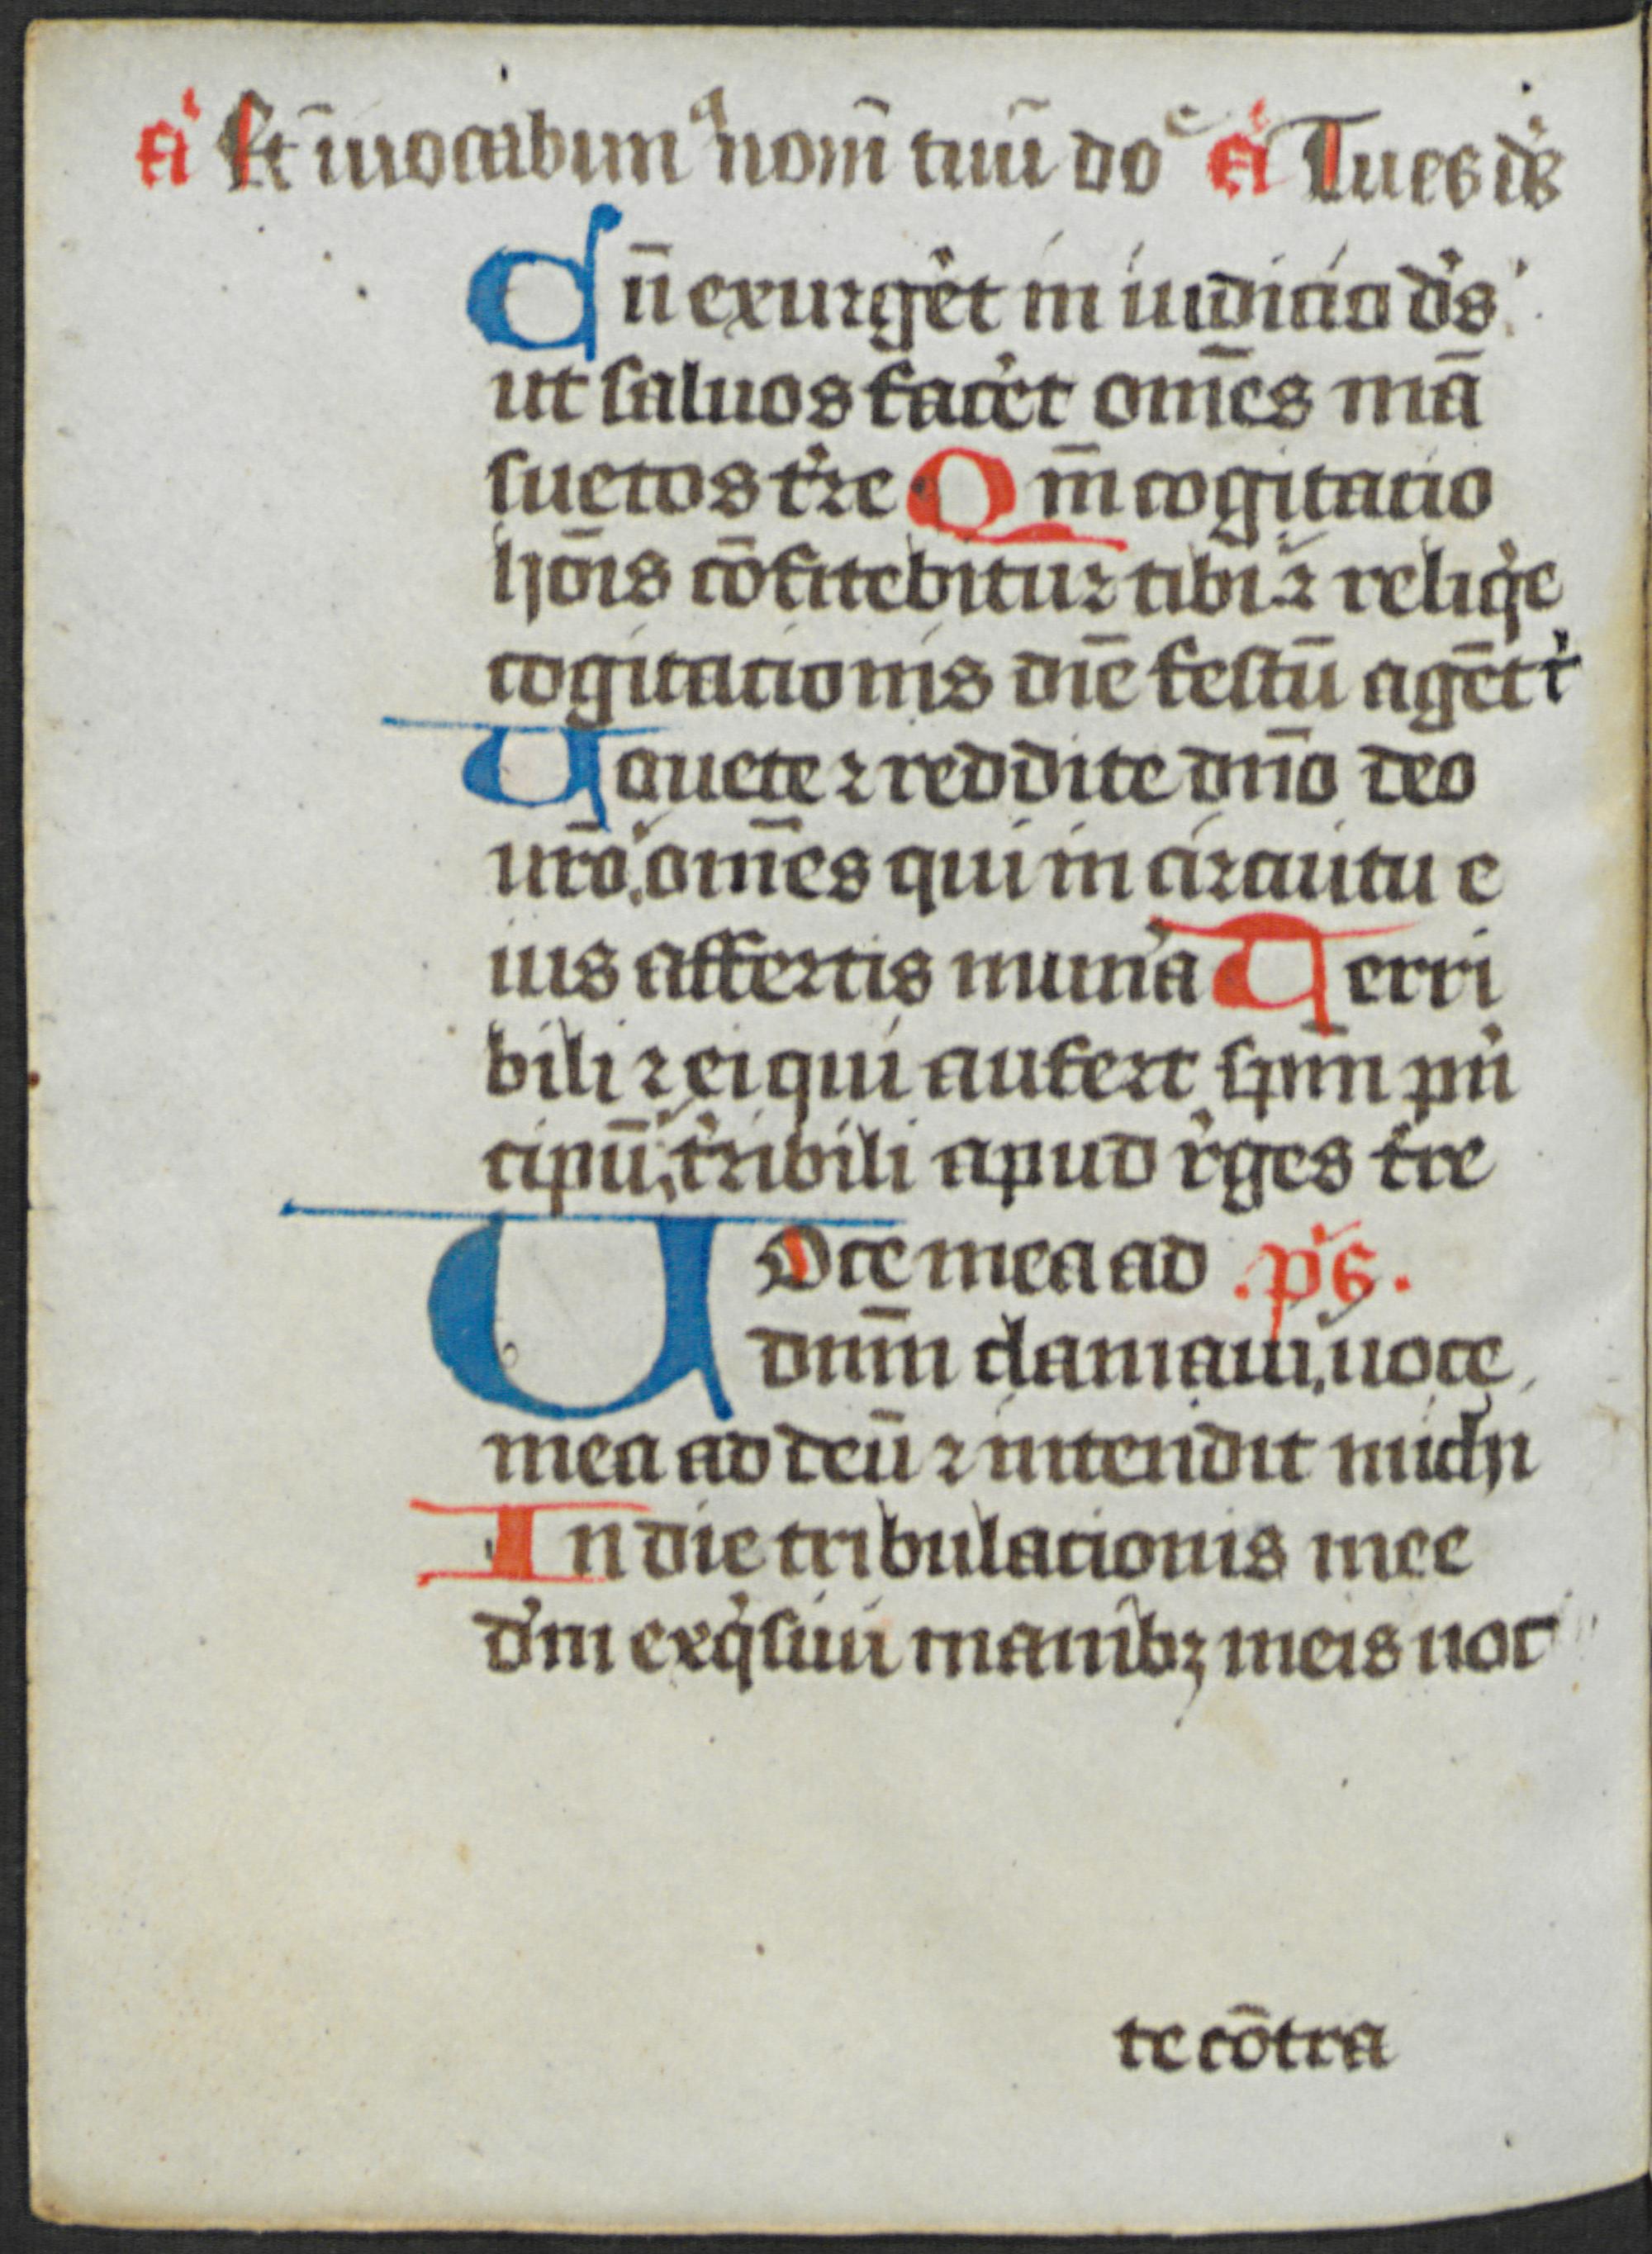 a͛ Et īuocabim nom̄ tuū do a͛ Tu es ds̄
Cū exurg͛et in iudicio ds̄
ut saluos fac͛et om̄es mā
suetos t͛re Qm̄ cogitatio
hōis cōfitebitur tibi ⁊ reliq͛e
cogitacionis diē festū agēt t͛
Uouete ⁊ reddite dn̄o deo
ur̄o om̄es qui in circuitu e
ius affertis mun͛a Terri
bili ⁊ ei qui aufert spm̄ p͛n
cipū t͛ribili apud r͛ges t͛re
Uoce mea ad .ps̄.
dnm̄ clamaui uoce
mea ad deū ⁊ intendit michi
In die tribulacionis mee
d͛m exq͛siui manibꝫ meis noc
te cōtra